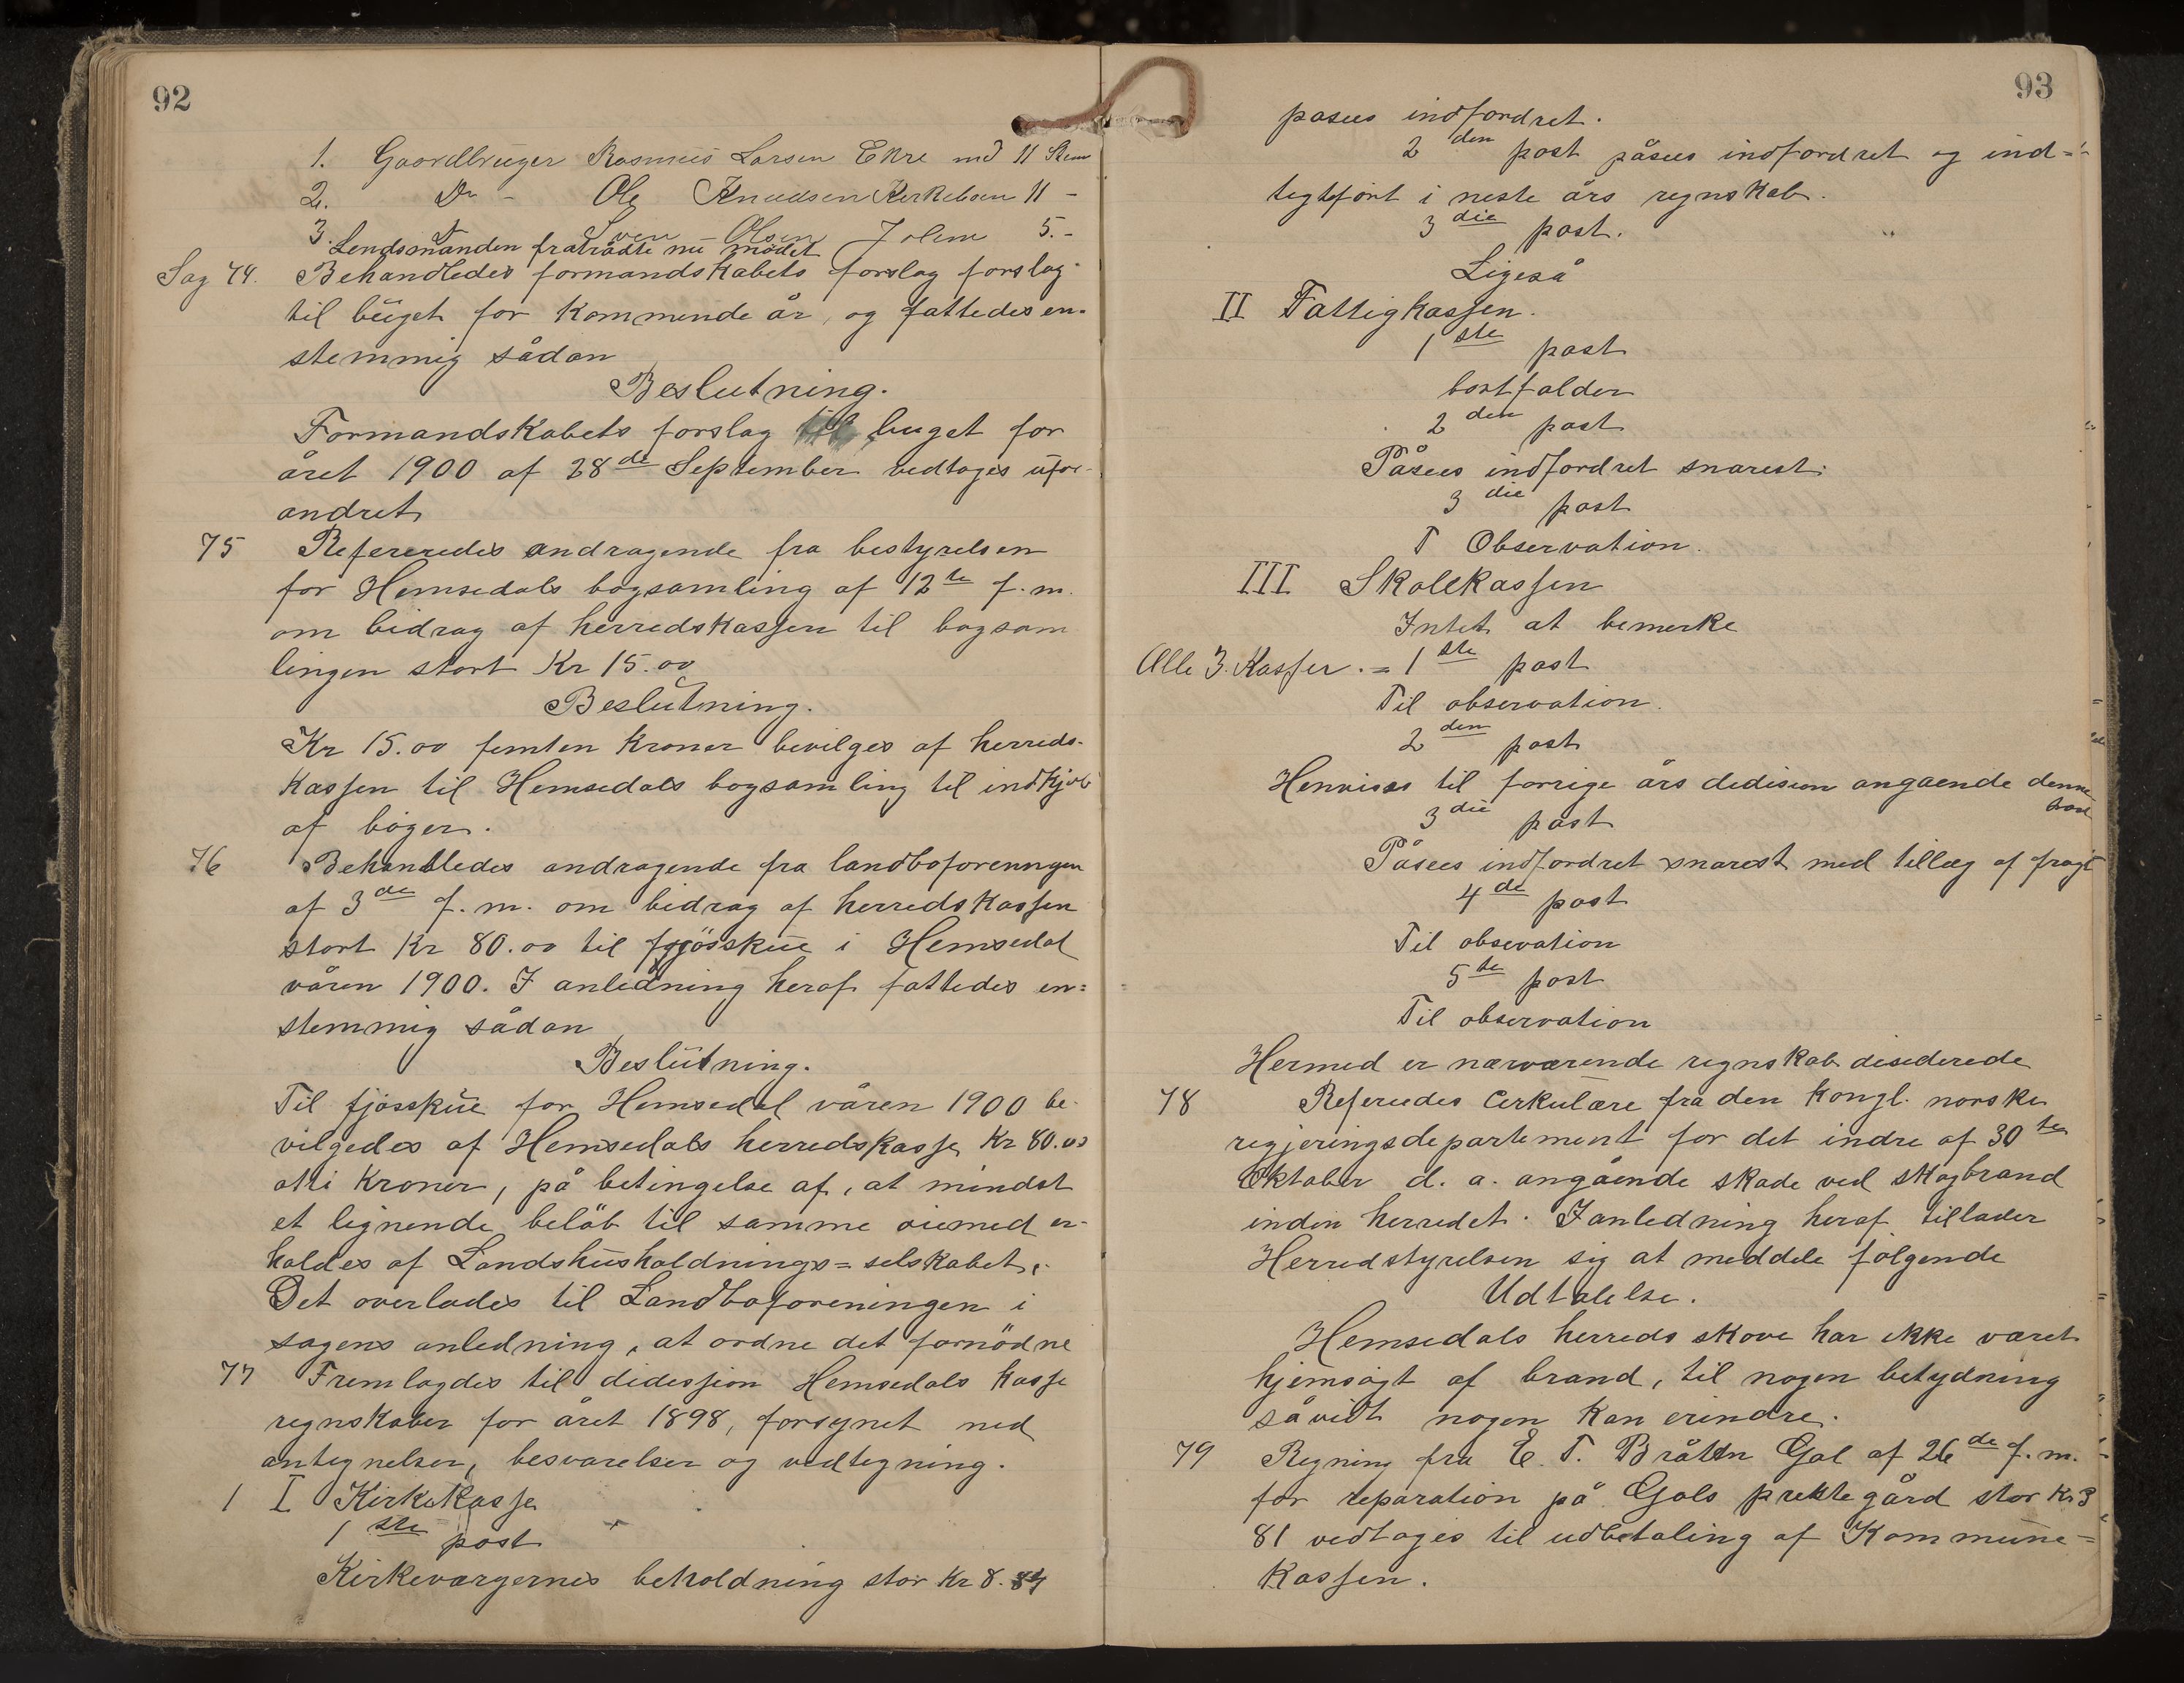 92
1. Gaardbruger Rasmus Larsen Ekre med 11 Stem
2. Do - Ole Knudsen Kirkeboen 11 -
3. Sven Olsen Jolem 5.-
Lendsmanden fratrådte nu mødet
Sag 74. Behandledes formandskabets forslag forslag
til buget for kommende år, og fattedes en-
stemmig sådan
Beslutning.
Formandskabets forslag til buget for
året 1900 af 28de September vedtages ufor-
andret
75 Refereredes andragende fra bestyrelsen
for Hemsedals bogsamling af 12te f.m.
om bidrag af herredskassen til bogsam
lingen stort Kr 15.00
Beslutning.
Kr 15.00 femten kroner bevilges af herreds-
kassen til Hemsedals bogsamling til indkjøb
af bøger.
76 Behandledes andragende fra landboforenngen
af 3de f.m. om bidrag af herredskassen
stort Kr 80.00 til fjøsskue i Hemsedal
våren 1900. I anledning heraf fattedes en=
stemmig sådan
Beslutning.
Til fjøsskue for Hemsedal våren 1900 be-
vilgedes af Hemsedals herredskasse Kr 80.00
otti kroner, på betingelse af, at mindst
et lignende beløb til samme øiemed er-
holdes af Landshusholdnings=selskabet.
Det overlades til Landboforeningen i
sagens anledning, at ordne det fornødne
77 Fremlagdes til didession Hemsedals kasse
regnskaber for året 1898, forsynet med
antegnelser, besvarelser og vedtegning.
1 I Kirkekasse
1ste post
Kirkevergernes beholdning stor Kr 8.84
93
påsees indfordret.
2den post påsees indfordret og ind=
tegtført i neste års regnskab.
3die post.
Ligeså
II Fattigkassen.
1ste post
bortfalder
2den post
Påsees indfordret snarest.
3die post
T Observation.
III Skolekassen
Intet at bemerke
Alle 3. Kasser. = 1ste post
Til observation.
2den post
Henvises til forrige års didision angaende denne
3die post
Påsees indfordret snarest med tillæg af fragt
4de post
Til obsevation
5te post
Til observation
Hermed er nærværende regnskab disederede
78 Refereedes Cerkulære fra den kongl. norske
regjeringsdepartement for det indre af 30te
Oktober d. a. angående skade ved skogbrand
inden herredet. I anledning heraf tillader
Herredstyrelsen sig at meddele følgende
Udtalelse.
Hemsedals herreds skove har ikke været
hjemsøgt af brand, til nogen betydning
såvidt nogen kan erindre.
79 Regning fra E. T. Bråten Gol af 26de f.m.
for reparation på Gols prestegård stor Kr 3
81 vedtages til udbetaling af Kommune=
kassen.